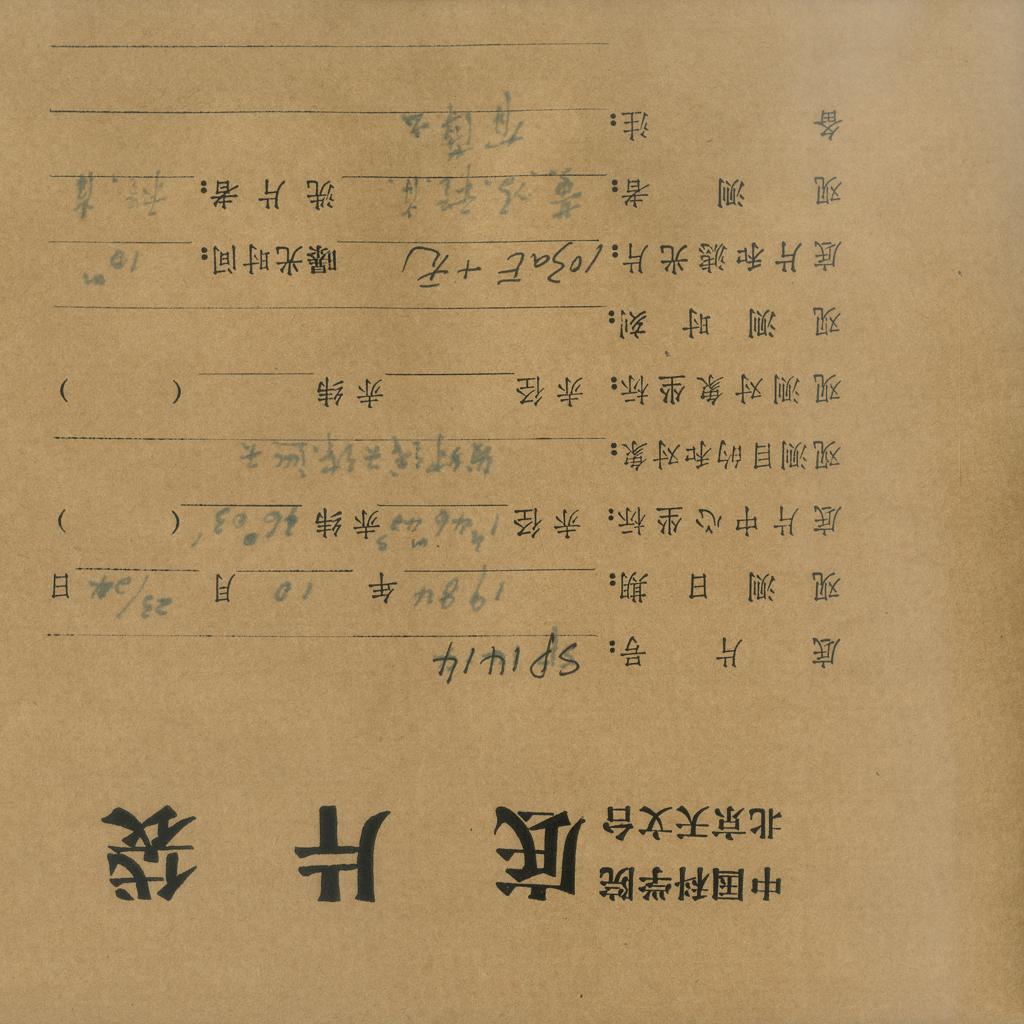 中国科学院
北京天文台 底片袋
底片号: SP1414
观测日期: 1984年10月23/24日
底片中心坐标: 赤径 1h46m40s 赤纬 46°03′ ( )
观测目的和对象:
观测对象坐标: 赤径 赤纬 ( )
观测时刻:
底片和滤光片: 103aE+无 曝光时间: 10m
观测者: 洗片者:
备注: 有薄云